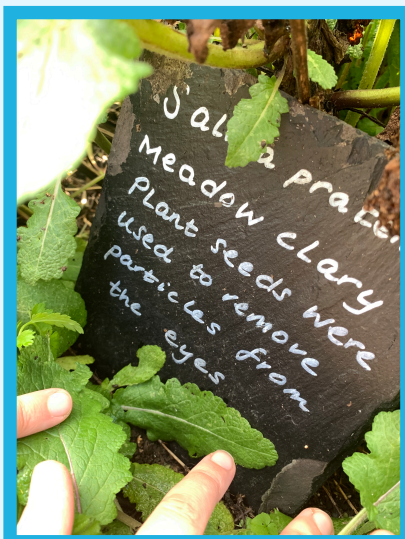 Sal a prate
Meadow clary
Plant seeds were
used to remove
particles from
the eyes